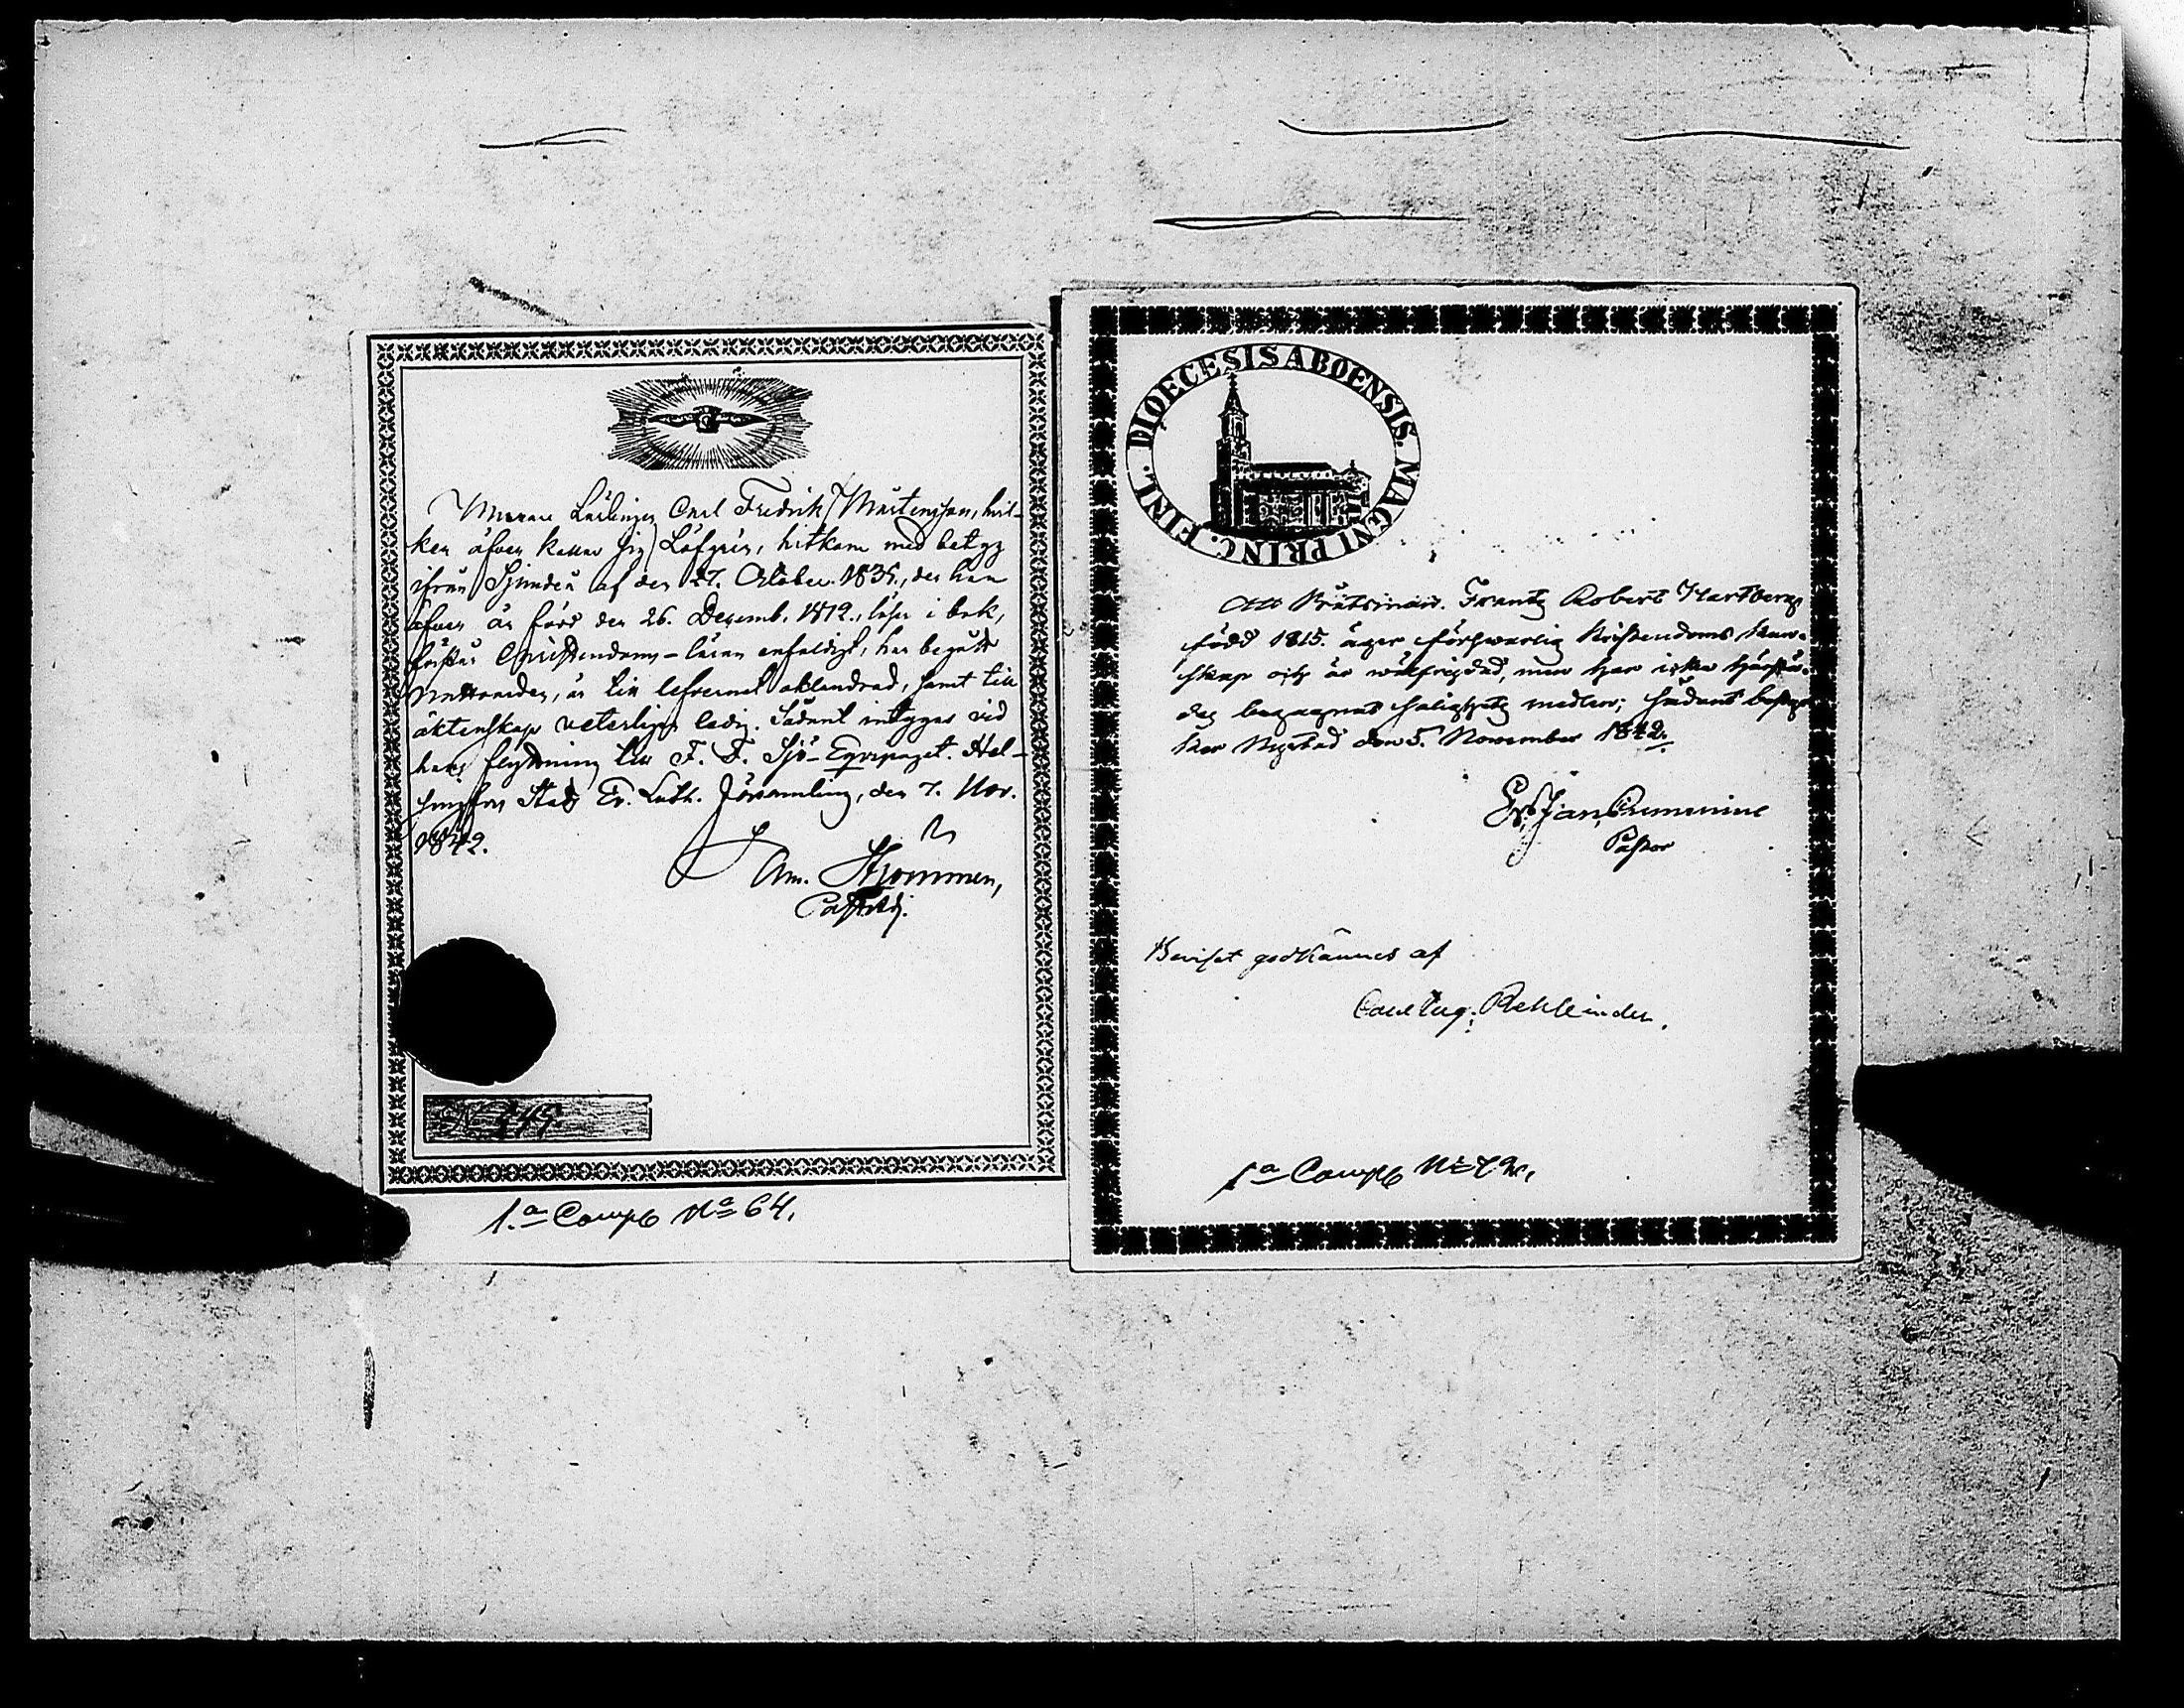 Murare Lärlingen Carl Fredrik Mårtensson, hvil-
ken äfven kallar sig Löfgrén, hitkom med betyg
ifrån Sjundeå af den 27. October 1835., der han
äfven är född den 26. Decemb. 1812., läser i bok,
förstår Christendoms-läran enfaldigt, har begått
Nattvarden, är till lefvernet oklandrad, samt till
äktenskap veterligen ledig. Sådant intygas vid
hans flyttning till F. F. Sjö-Equipaget. Hel-
singfors Stads Ev. Luth. Församling, den 7. Nov.
1842.
Am. Hjornmen,
Past. Adj.
N. 249.
1.a Comp. No 64.
DIOECESIS ABOENSIS. MAGNI PRINC. FINL.
Att Båtsman. Frantz Robert Hartberg
född 1815. äger försvarlig Kristendoms kun-
skap och är wälfrejdad, men har icke
begagnat salighets medlen; sådant
Nystad den 5. November 1842.
Pastor
Beviset godkännes af
Carl Aug. Rehbinder.
1a Comp.